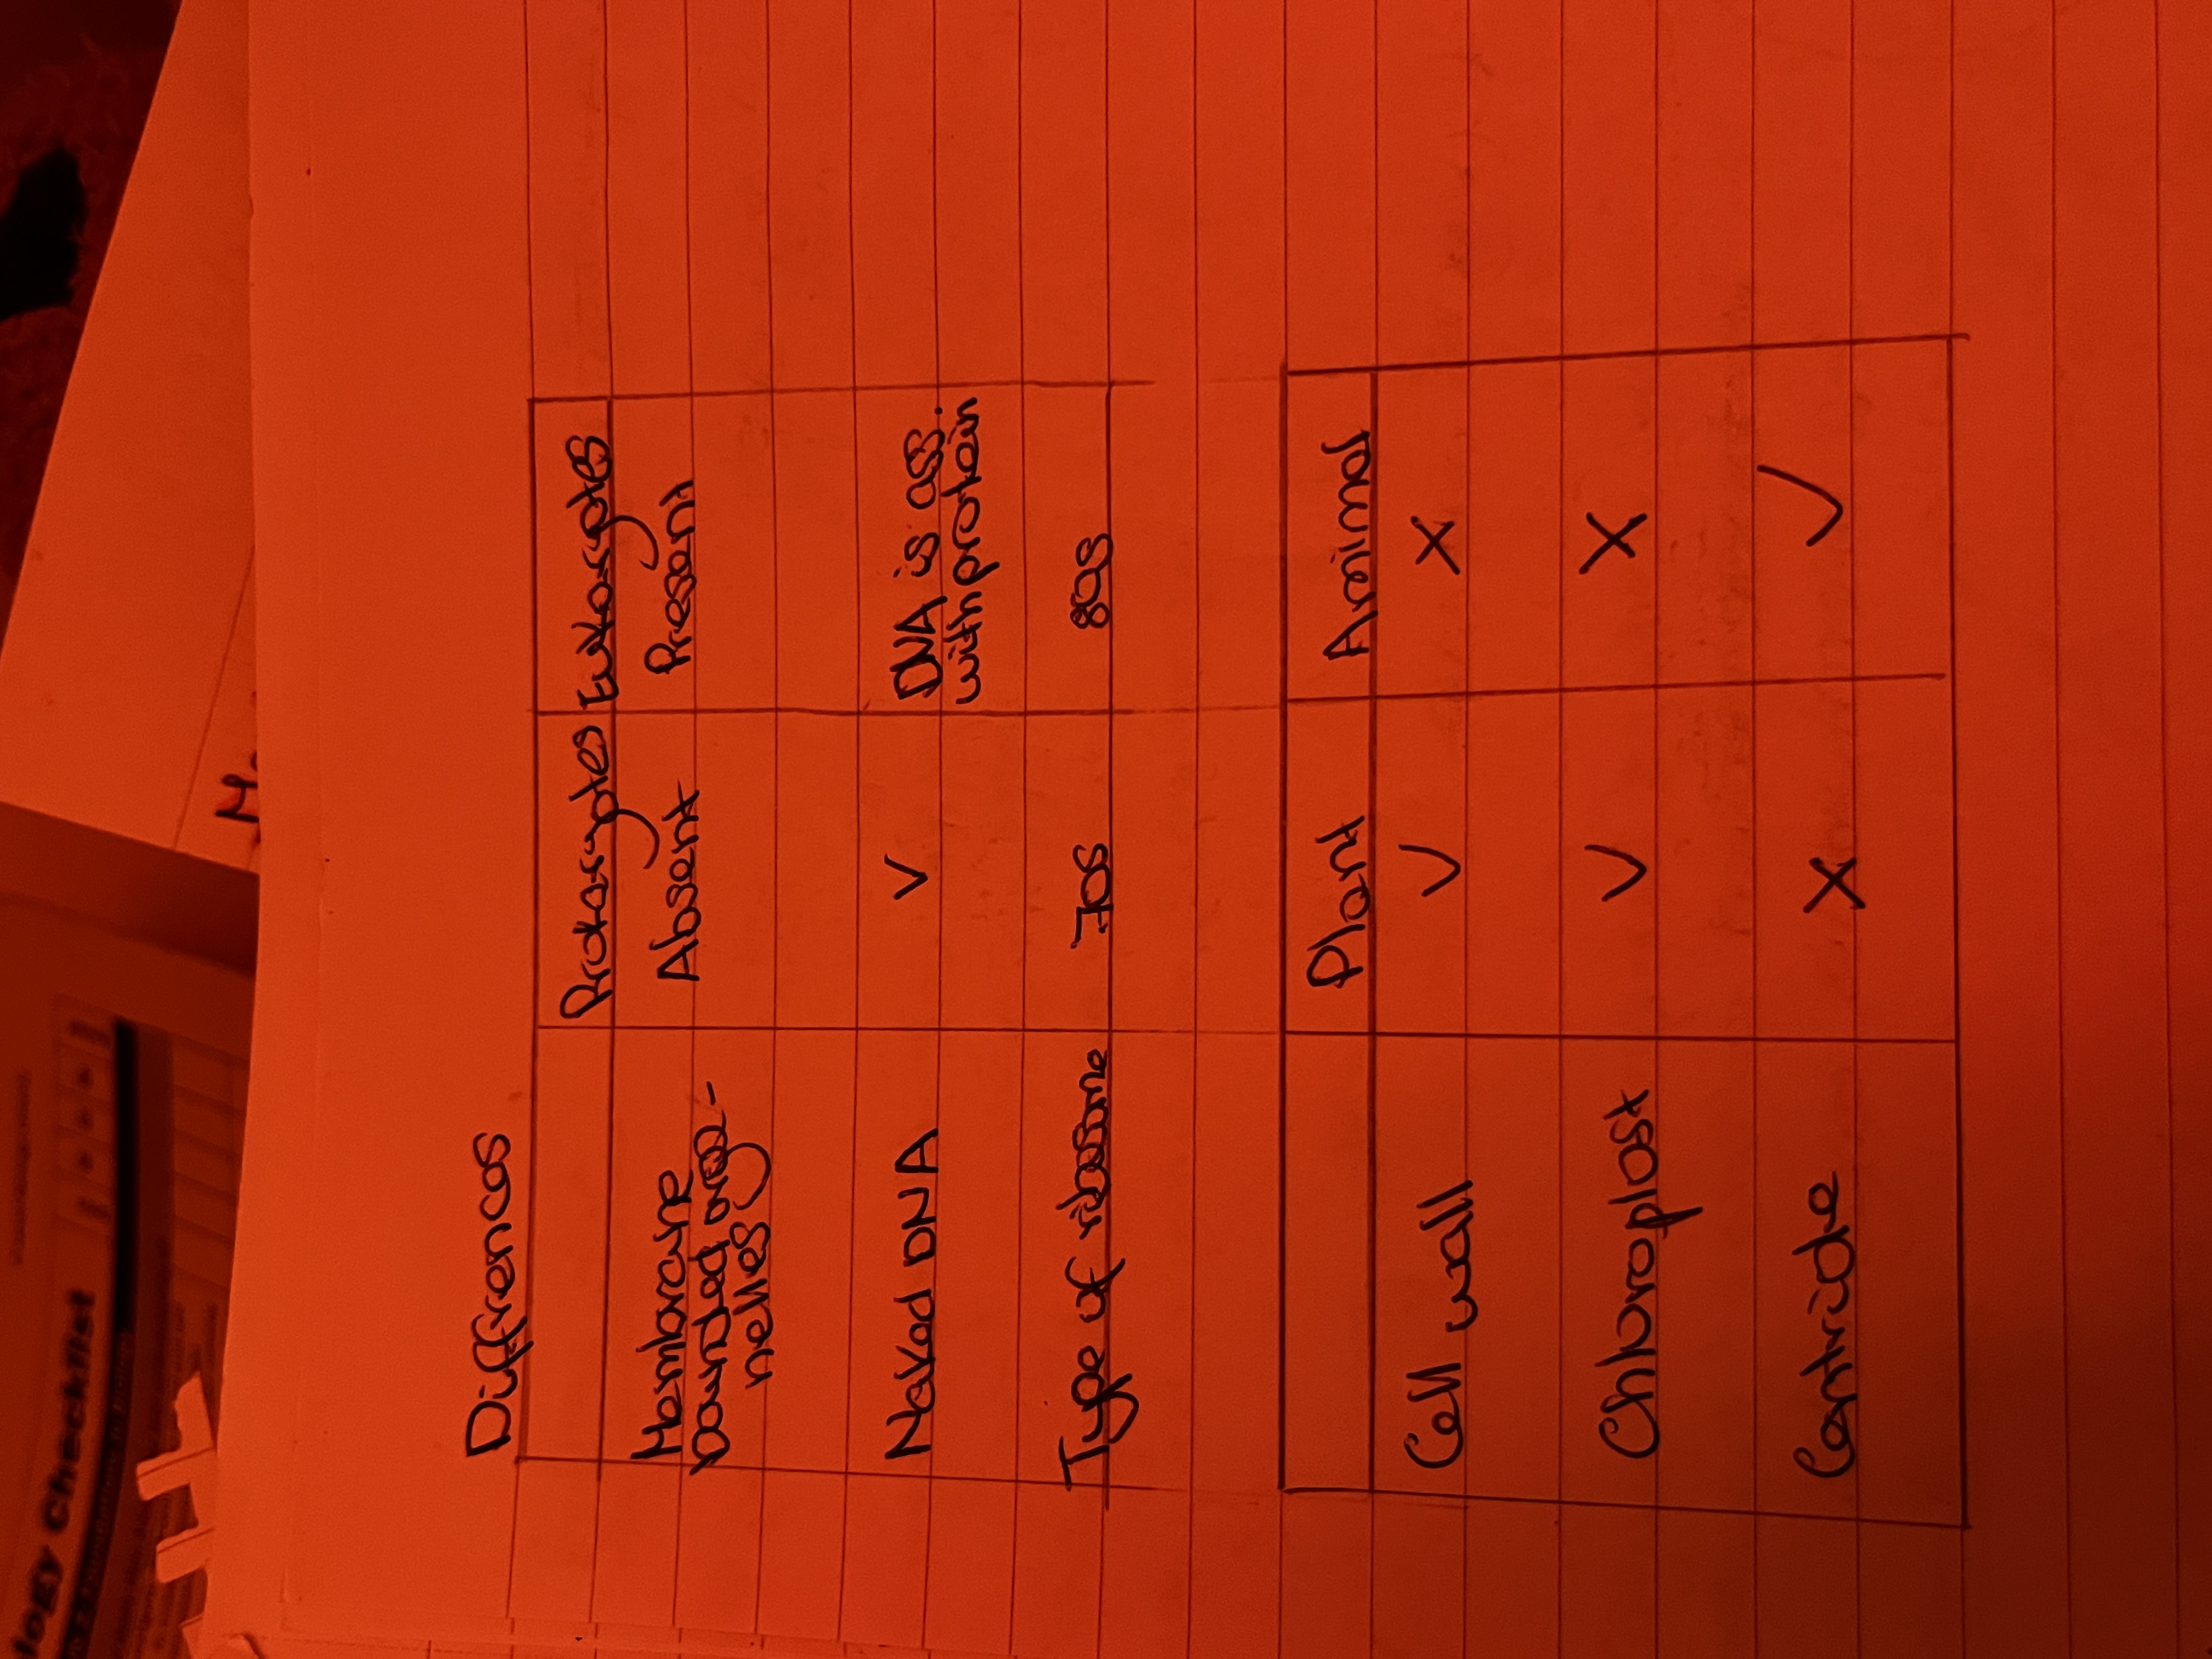 Diffrences
Prokaryotes Eukaryotes
Membrane
bounded orga-
nelles
Absent
Present
Naked DNA
V
DNA is ass.
with protein
Type of ribosome
70S
80S
Plant
Animal
Cell wall
V
X
Chloroplast
V
X
Centriole
X
V
IOEY Checklist